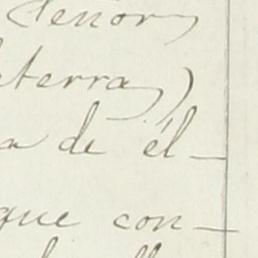 Señor
terra)
a de él_
que con_